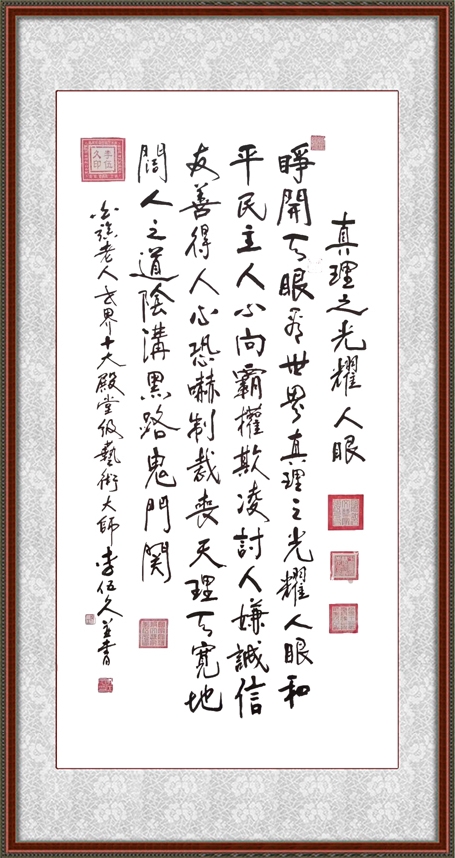 真理之光耀人眼
睜開天眼看世界真理之光耀人眼和
平民主人心向霸權欺凌討人嫌誠信
友善得人心恐嚇制裁喪天理天寬地
闊人之道陰溝黑路鬼門関
老人世界十大殿堂級藝術大師李伍久並書
李伍久印